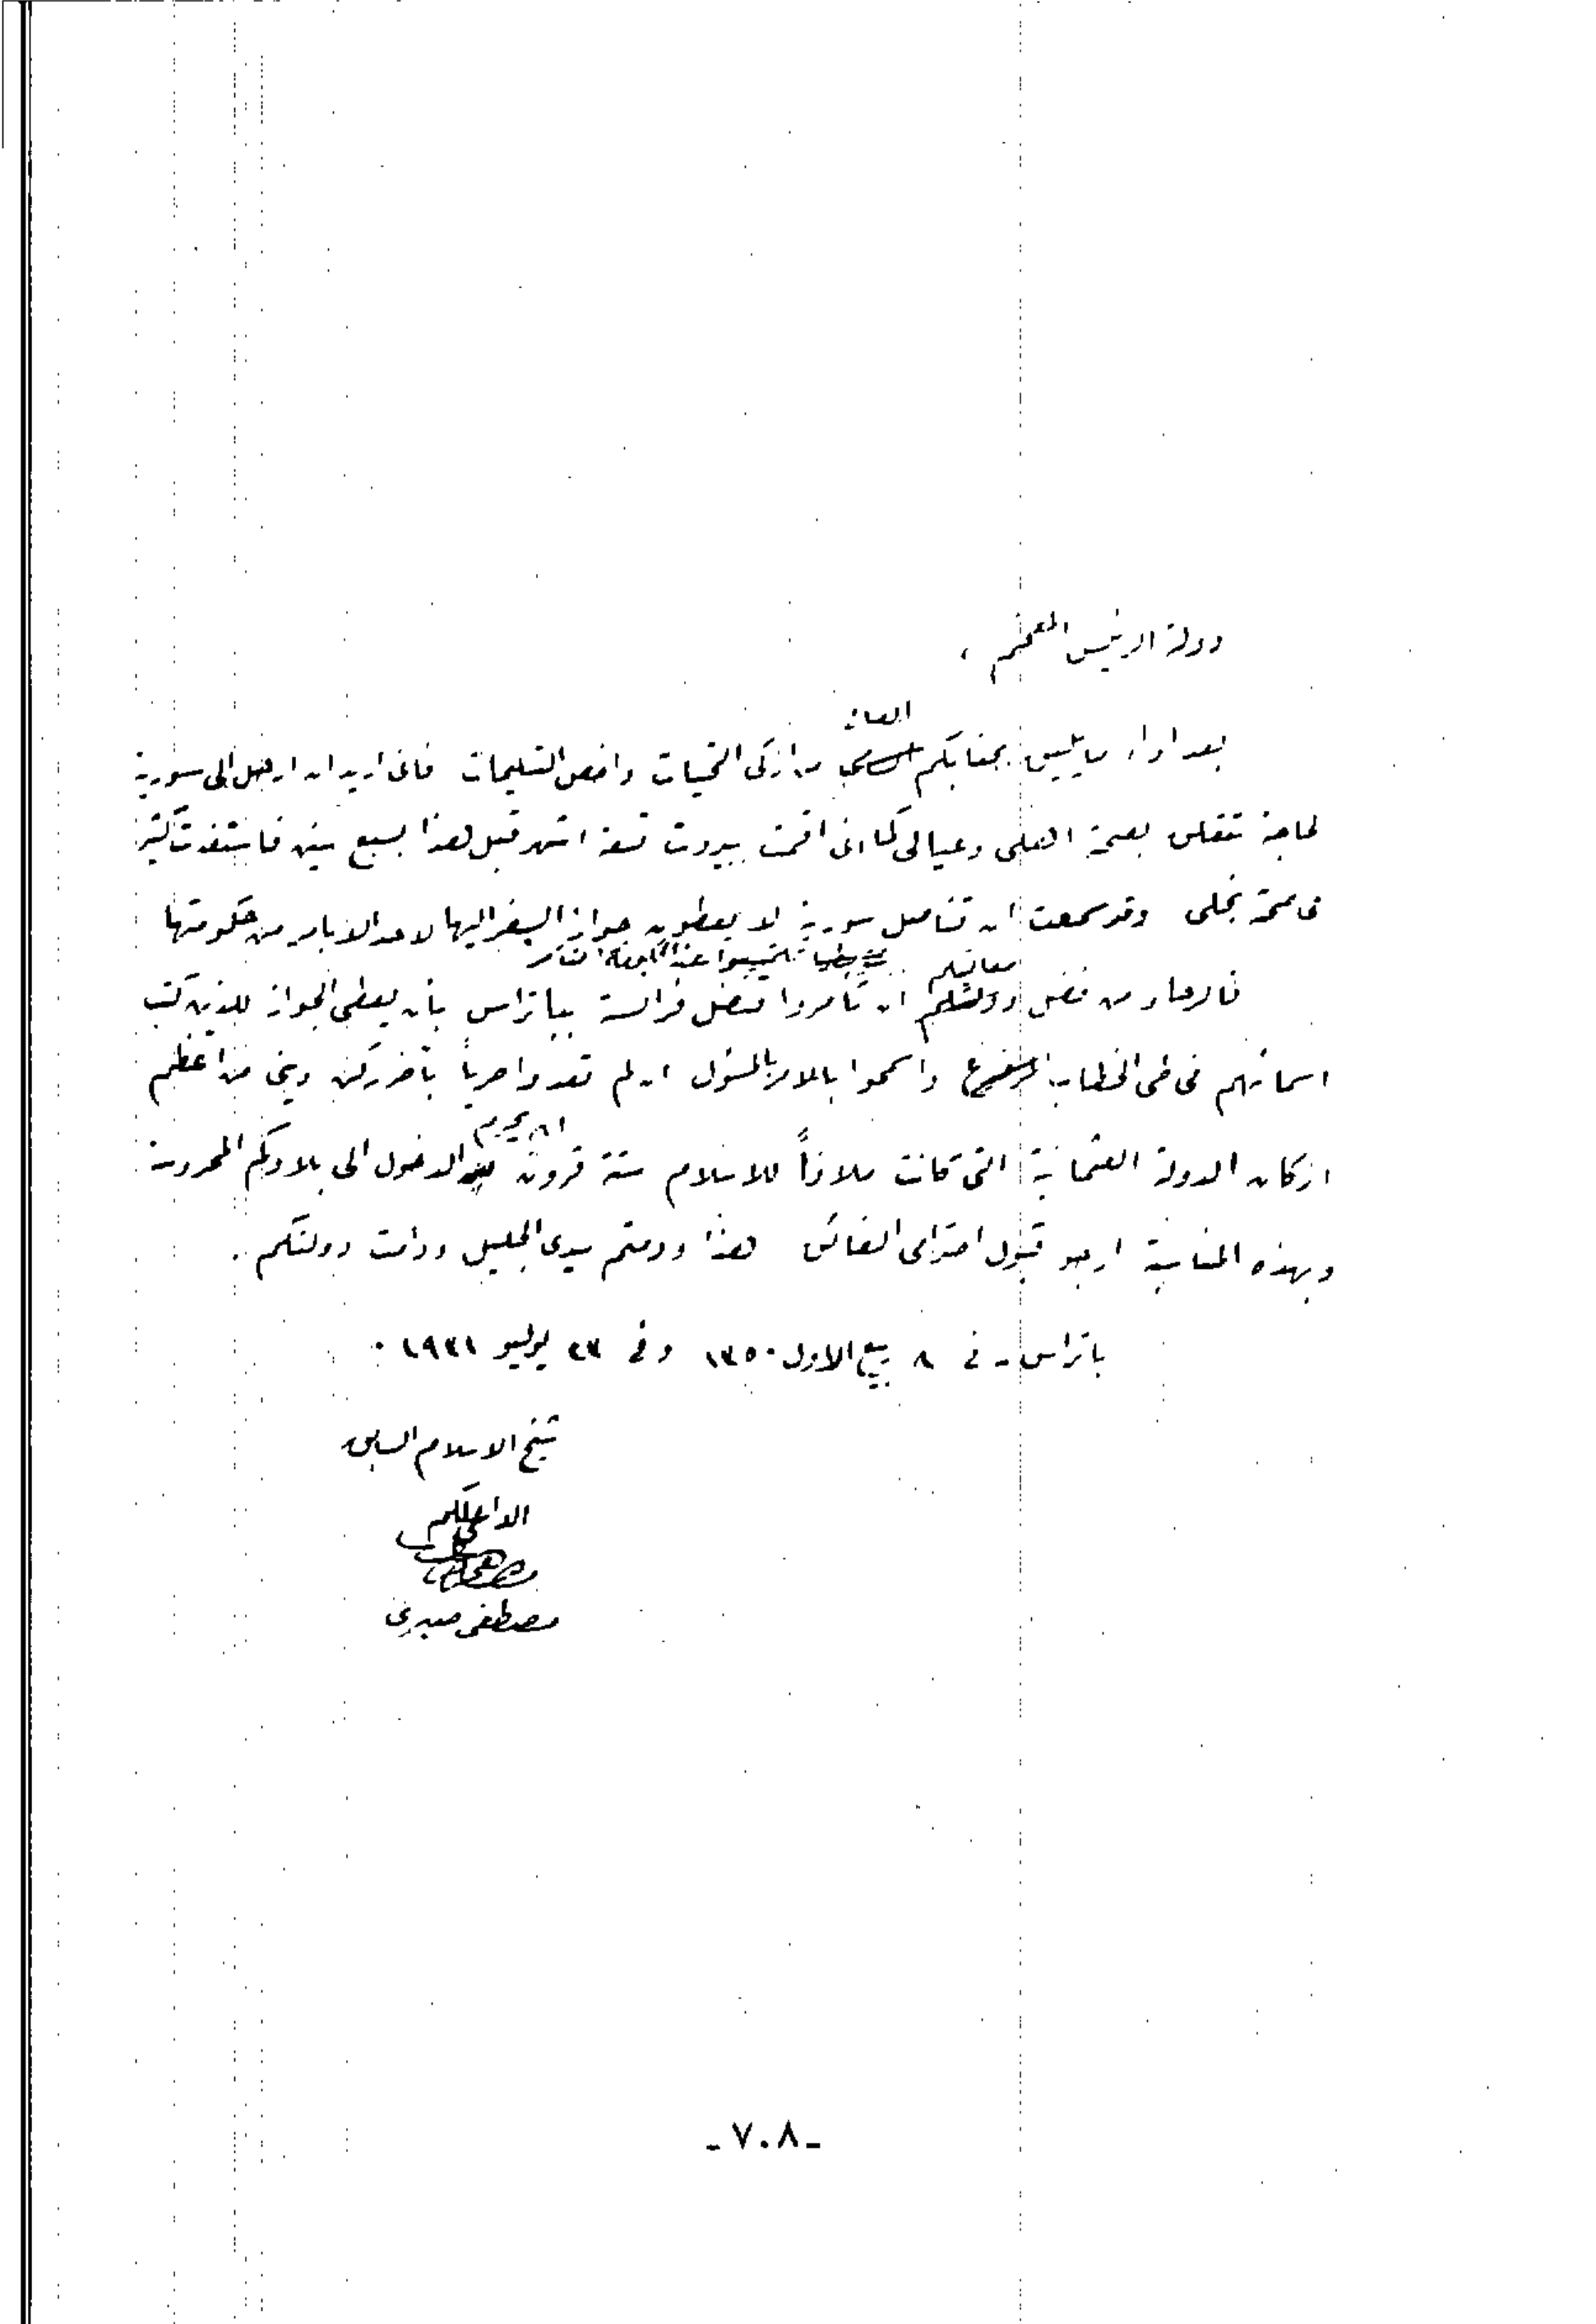 دولة الرئيس المعظم ،
العالى
بعد اداء ما يليق بجنابكم من ازكى التحيات واخص التسليمات فانى اريد ان ارحل الى سورية
لحاجة تتعلق بصحة اهلى وعيالى كما انى اقمت ببيروت تسعة اشهر قبل هذا بسبع سنين فاستفدت كثيرا
فى صحة نجلى وقد سمعت ان قناصل سورية لا يعطون جواز السفر اليها لاحد الا بامر من حكومتها
معاليكم
فالرجاء من فضل دولتكم ان تأمروا قنصل فرانسة بباتراس بأن يعطى الجواز للذين كتب
اسمائهم فى طى الخطاب واسمحوا بالامر المسئول ان لم تعدوا حريا بآخر ركن دينى من اعظم
ان يحرم
اركان الدولة العثمانية التى كانت ملاذاً للاسلام ستة قرون الدخول الى بلادكم المحروسة
وبهذه المناسبة ارجو قبول احترامى الفائق هذا ودمتم سيدى الجليل ودامت دولتكم .
باتراس - فى ٨ ربيع الاول ١٣٥٠ وفى ٢٣ يوليو ١٩٣١ .
شيخ الاسلام السابق
الداعى لكم
مصطفى صبرى
- ٧٠٨ -